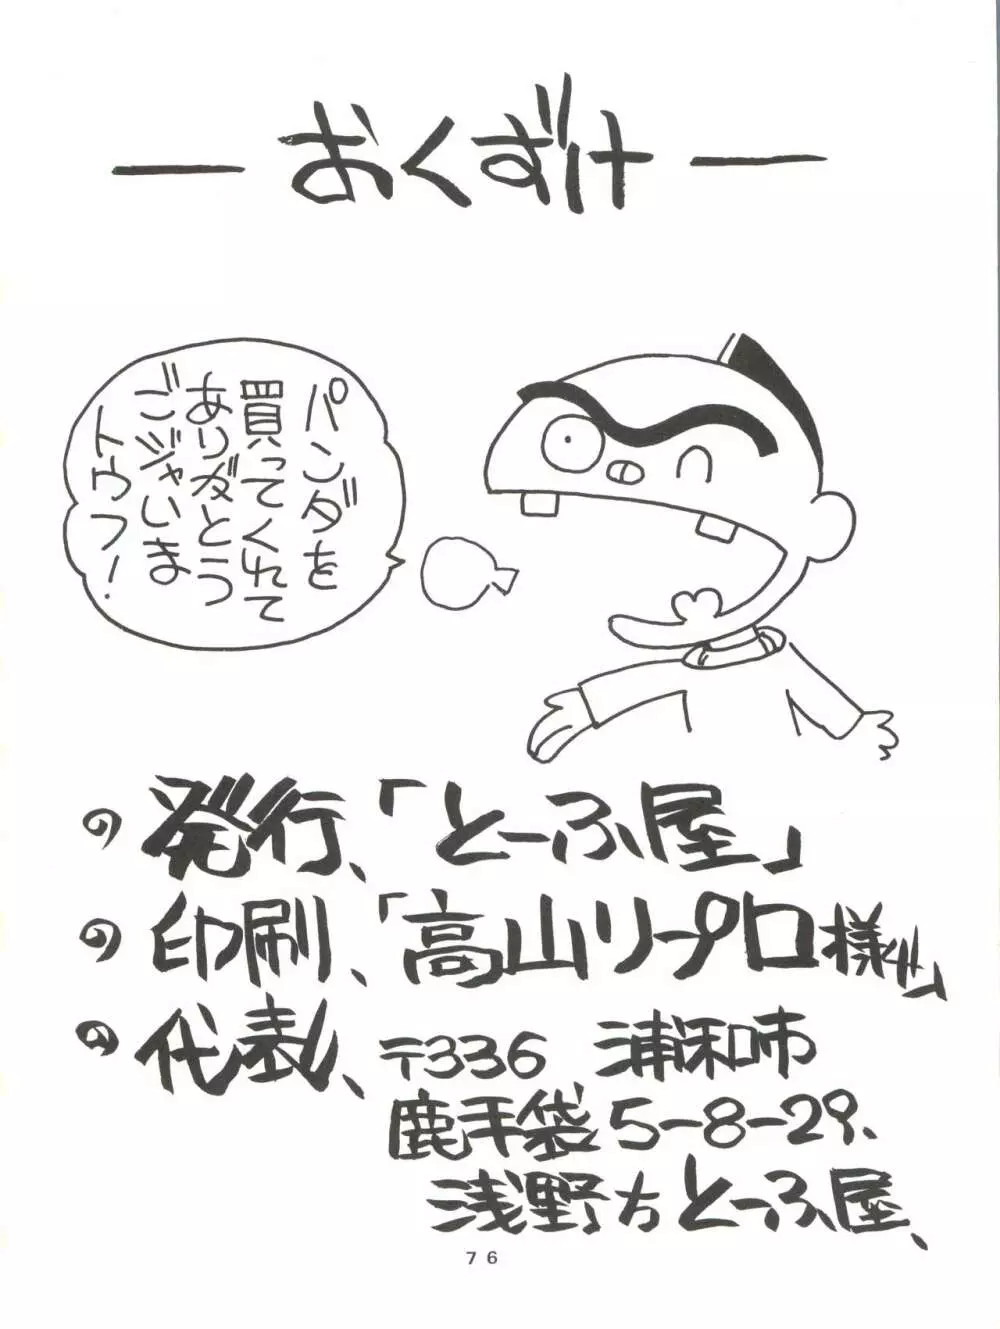 ー おくずけ ー
パンダを
買ってくれて
ありがとう
ごジャいま
トウフ！
の 発行、「とーふ屋」
の 印刷、「高山リープロ様」
の 代表、〒336 浦和市
鹿手袋5-8-29、
浅野方とーふ屋、
76